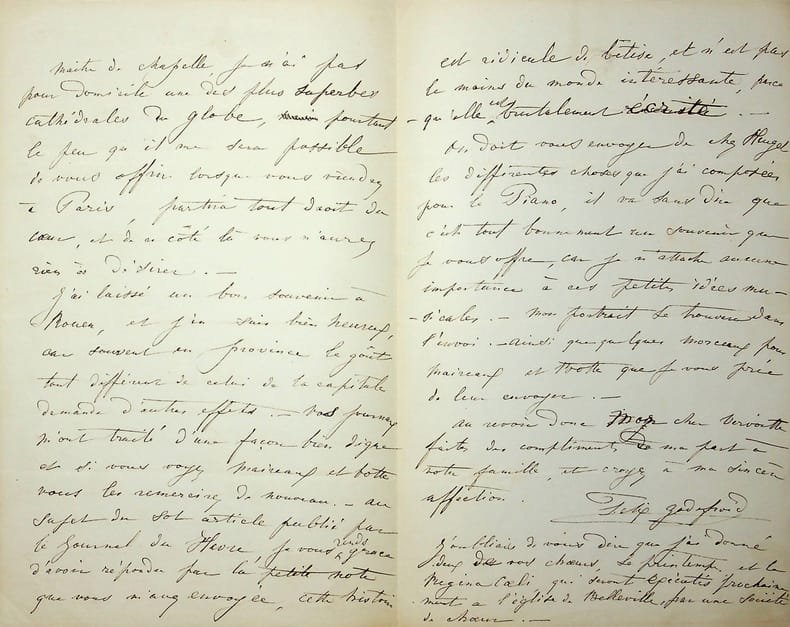 maitre de chapelle je n'ai pas
pour domicile une des plus superbes
cathédrales du globe, pourtant
le peu qu'il me sera possible
de vous offrir lorsque vous viendrez
à Paris, partira tout droit du
cœur, et de ce côté là vous n'aurez
rien à désirer. —
J'ai laissé un bon souvenir à
Rouen, et j'en suis bien heureux,
car souvent en province le goût
tout différent de celui de la capitale
demande d'autres effets. — vos journaux
m'ont traité d'une façon bien digne
et si vous voyez maireaux et botte
vous les remercirez de nouveau. — au
sujet du sot article publié par
le Journal du Havre, je vous rends grace
d'avoir répondu par la petite note
que vous m'avez envoyée, cette histoire
est ridicule de bêtise, et n'est pas
le moins du monde intéressante, parce
- qu'elle est brutalement écrite. —
On doit vous envoyer de chez Heugel
les différentes choses que j'ai composées
pour le Piano, il va sans dire que
c'est tout bonnement un souvenir que
je vous offre, car je n'attache aucune
importance à ces petites idées mu-
- sicales. — mon portrait se trouvera dans
l'envoi. — ainsi que quelques morceaux pour
maireaux et botte que je vous prie
de leur envoyer. —
au revoir donc mon cher Vervoitte
faites des compliments de ma part à
votre famille, et croyez à ma sincère
affection.
Félix Godefroid
J'oubliais de vous dire que j'ai donné
deux de vos chœurs, Le printemps et le
Regina Cœli qui seront exécutés prochaine
ment à l'église de Belleville par une société
de chœur. —